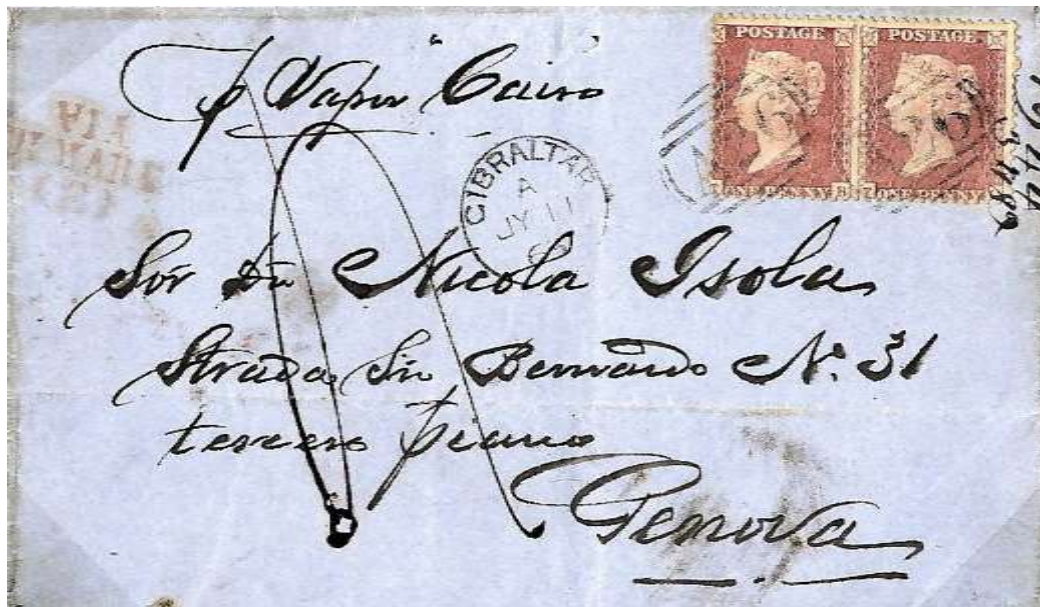 p Vapor "Cairo
POSTAGE POSTAGE
ONE PENNY ONE PENNY
A26
GIBRALTAR
A
JY 11
VIA
Sor Dn Nicola Isola
Strada Sn Bernardo No. 31
tercero piano
Genova